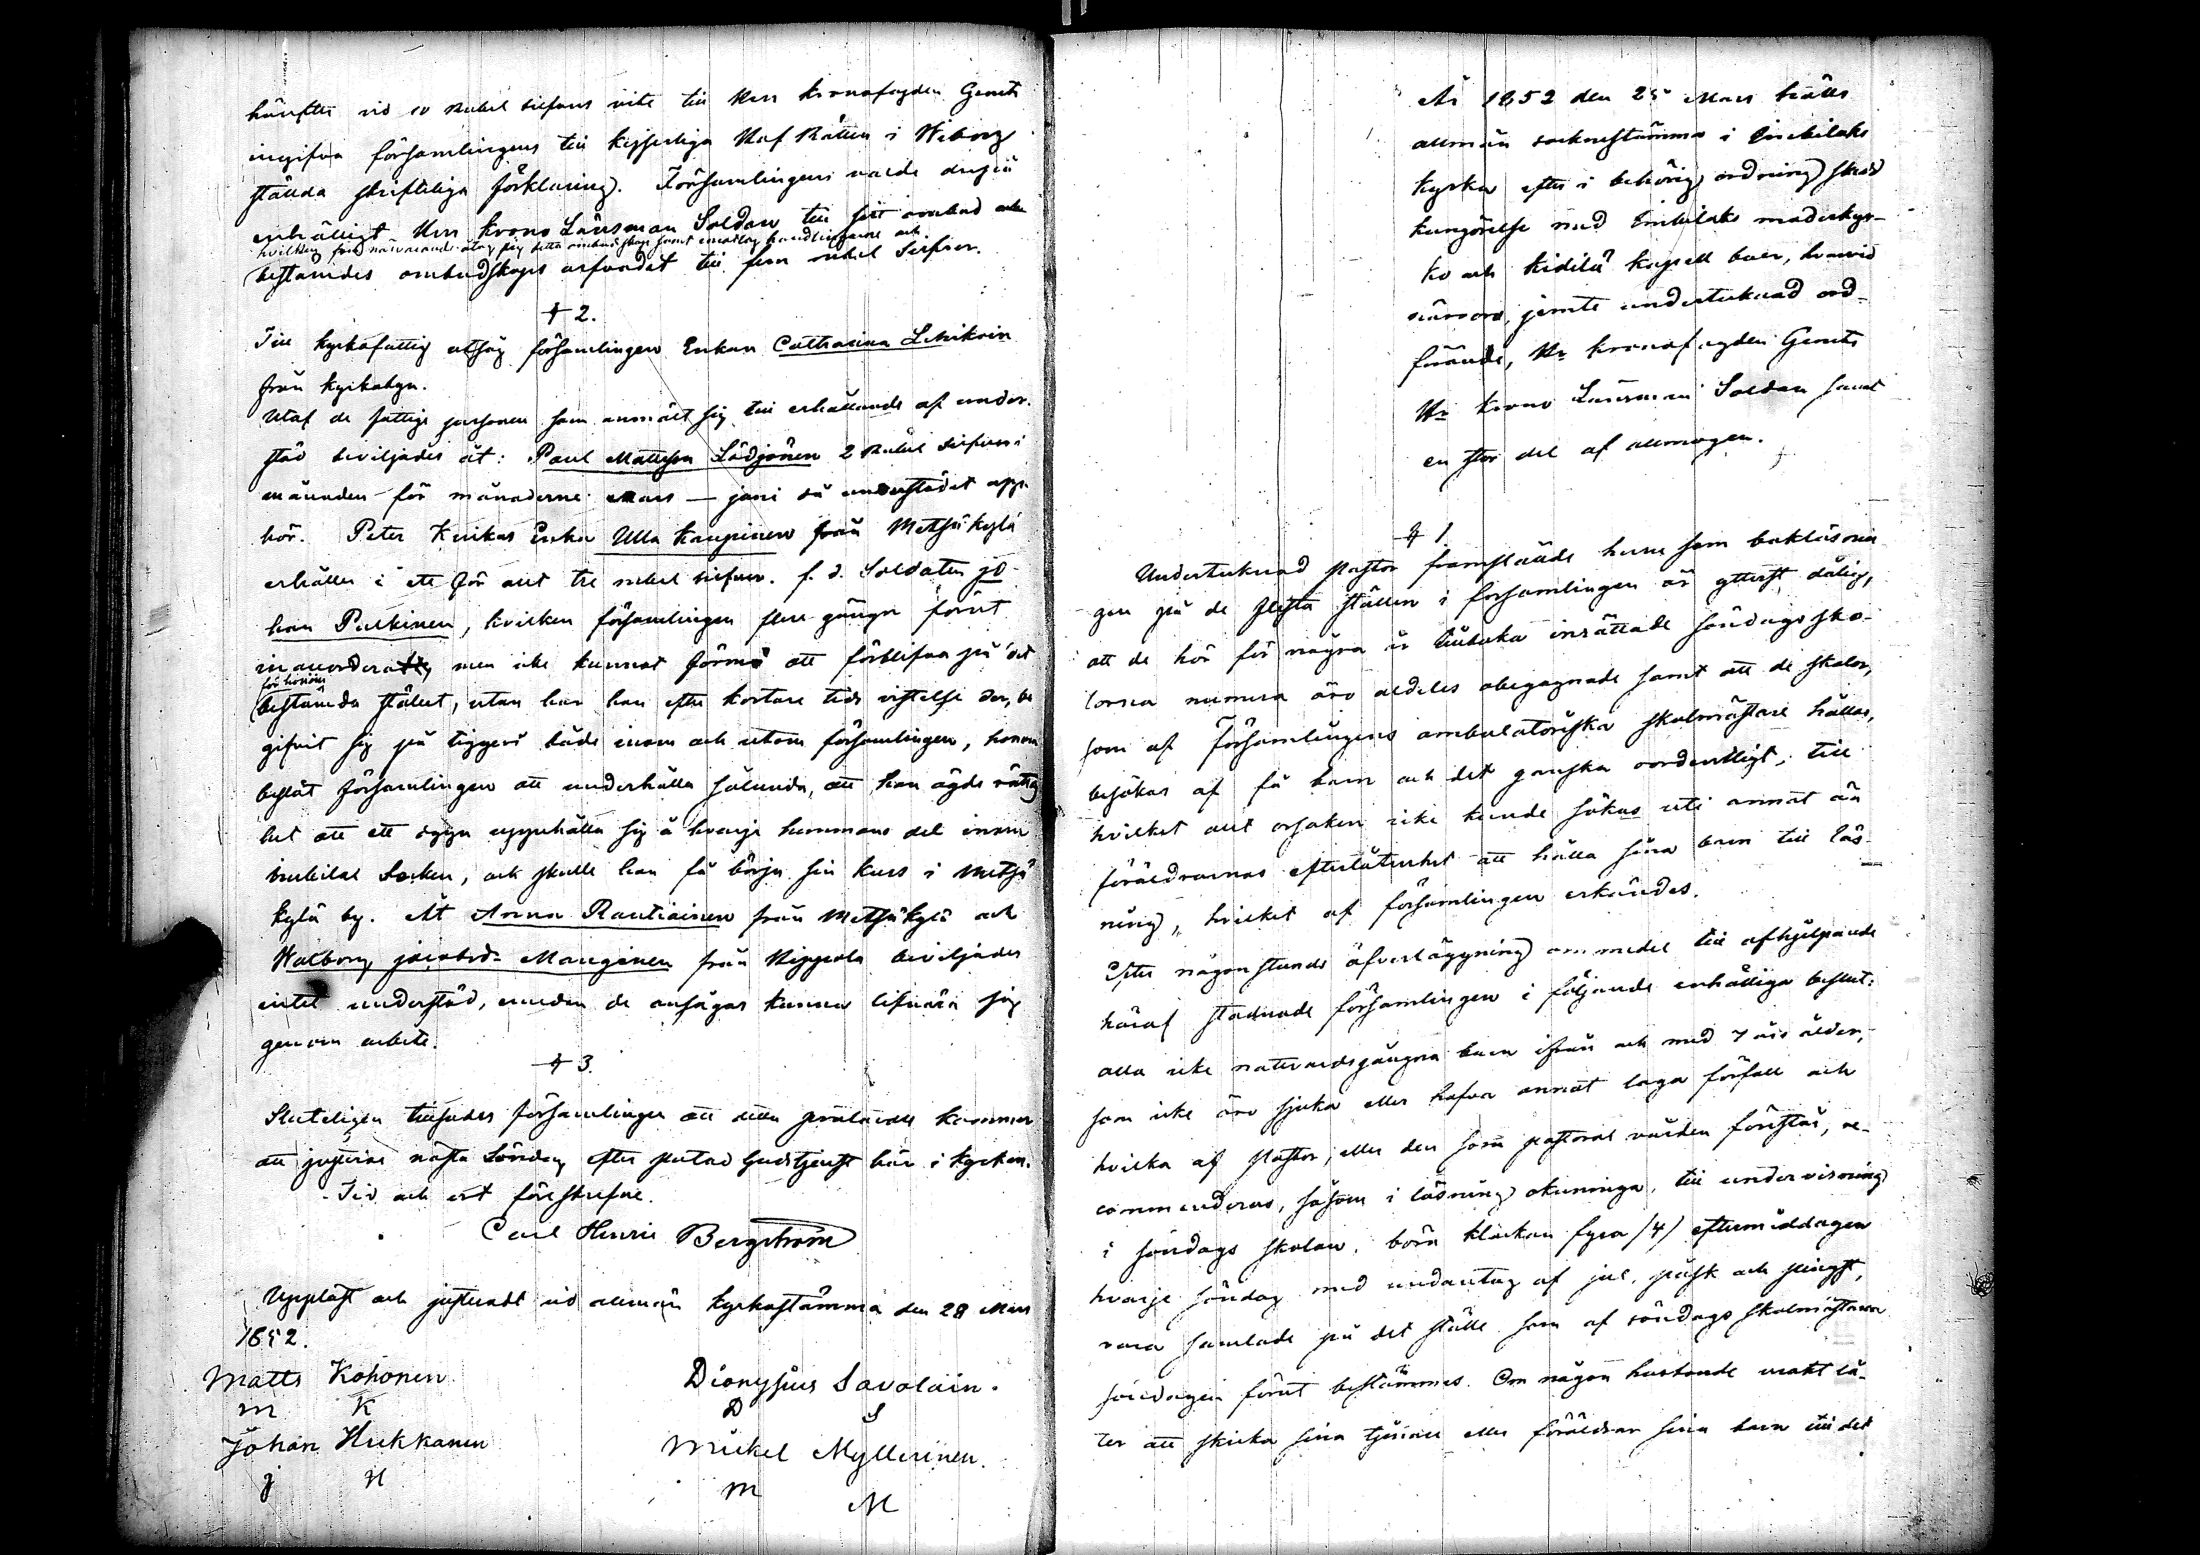 härefter vid 10 Rubel silfvers vite till Herr Kronofogden Gerntz
ingifva församlingens till Kejserliga Hof Rätten i Wiborg
ställda skriftliga förklaring. Församlingen valde dertill
enhälligt Herr Krono Länsman Soldan till sitt ombud och
hvilken sjelf närvarande åtog sig detta ombudskap samt emottog handlingarne och
bestämdes ombudskaps arfvodet till fem rubel Silfver.
§ 2.
Till kyrkofattig utsåg församlingen Enkan Catharina Leinikain
från Kyrkobyn.
Utaf de fattige personer som anmält sig till erhållande af under-
stöd beviljades åt: Paul Mattsson Lädjönen 2 Rubel Silfver i
månaden för månaderne Mars — juni då understödet upp-
hör. Peter Kuikas Enka Ulla Kaupinen från Metsäkylä
erhåller i ett för allt tre rubel silfver. f. d. Soldaten Jo-
han Pulkinen, hvilken församlingen flere gånger förut
inaccorderat men icke kunnat förmå att förblifva på det
för honom
bestämda stället, utan har han efter kortare tids vistelse der, be-
gifvit sig på tiggeri både inom och utom församlingen, honom
beslöt församlingen att underhålla sålunda, att han ägde rättig-
het att ett dygn uppehålla sig å hvarje hemmans del inom
Imbilax Socken, och skulle han få börja sin kurs i Metsä-
kylä by. Åt Anna Rautiainen från Metsäkylä och
Walborg Jacobsd. Manginen från Kippola beviljades
intet understöd, emedan de ansågos kunna lifnära sig
genom arbete.
§ 3.
Sluteligen tillsades församlingen att detta protocoll kommer
att justeras nästa Söndag efter slutad Gudstjenst här i kyrkan.
Tid och ort förskrefne.
Carl Henric Bergström
Uppläst och justeradt vid allmän kyrkostämma den 28 Mars
1852.
Matts Kohonen Dionysius Savolain.
M K D S
Johan Hukkanen Mickel Myllerinen.
J H M M
År 1852 den 25 Mars hölls
allmän sockenstämma i Imbilaks
kyrka efter i behörig ordning skedd
kungörelse med Imbilaks moderkyr-
ko och Kidilä kapell boer, hvarvid
närvoro, jemte undertecknad ord-
förande, Hr Kronofogden Gerntz
Hr Krono Länsman Soldan samt
en stor del af allmogen.
§ 1.
Undertecknad Pastor framställde huru som bokläsnin-
gen på de flesta ställen i församlingen är ytterst dålig,
att de här för några år tillbaka inrättade söndagssko-
lorna numera äro aldeles obegagnade samt att de skolor,
som af Församlingens ambulatoriska skolmästare hållas,
besökas af få barn och det ganska oordentligt, till
hvilket allt orsaken icke kunde sökas uti annat än
föräldrarnas efterlåtenhet att hålla sina barn till läs-
ning, hvilket af församlingen erkändes.
Efter någon stunds öfverläggning om medel till afhjelpande
häraf stadnade församlingen i följande enhälliga beslut:
alla icke nattvardsgångna barn ifrån och med 7 års ålder,
som icke äro sjuka eller hafva annat laga förfall och
hvilka af Pastor, eller den som pastoral vården förestår, re-
commenderas, såsom i läsning okunniga, till undervisning
i söndags skolan, böra klockan fyra /4/ eftermiddagen
hvarje söndag med undantag af jul, påsk och pingst,
vara samlade på det ställe som af söndags skolmästaren
söndagen förut bestämmes. Om någon husbonde underlå-
ter att skicka sina tjenare eller föräldrar sina barn till det